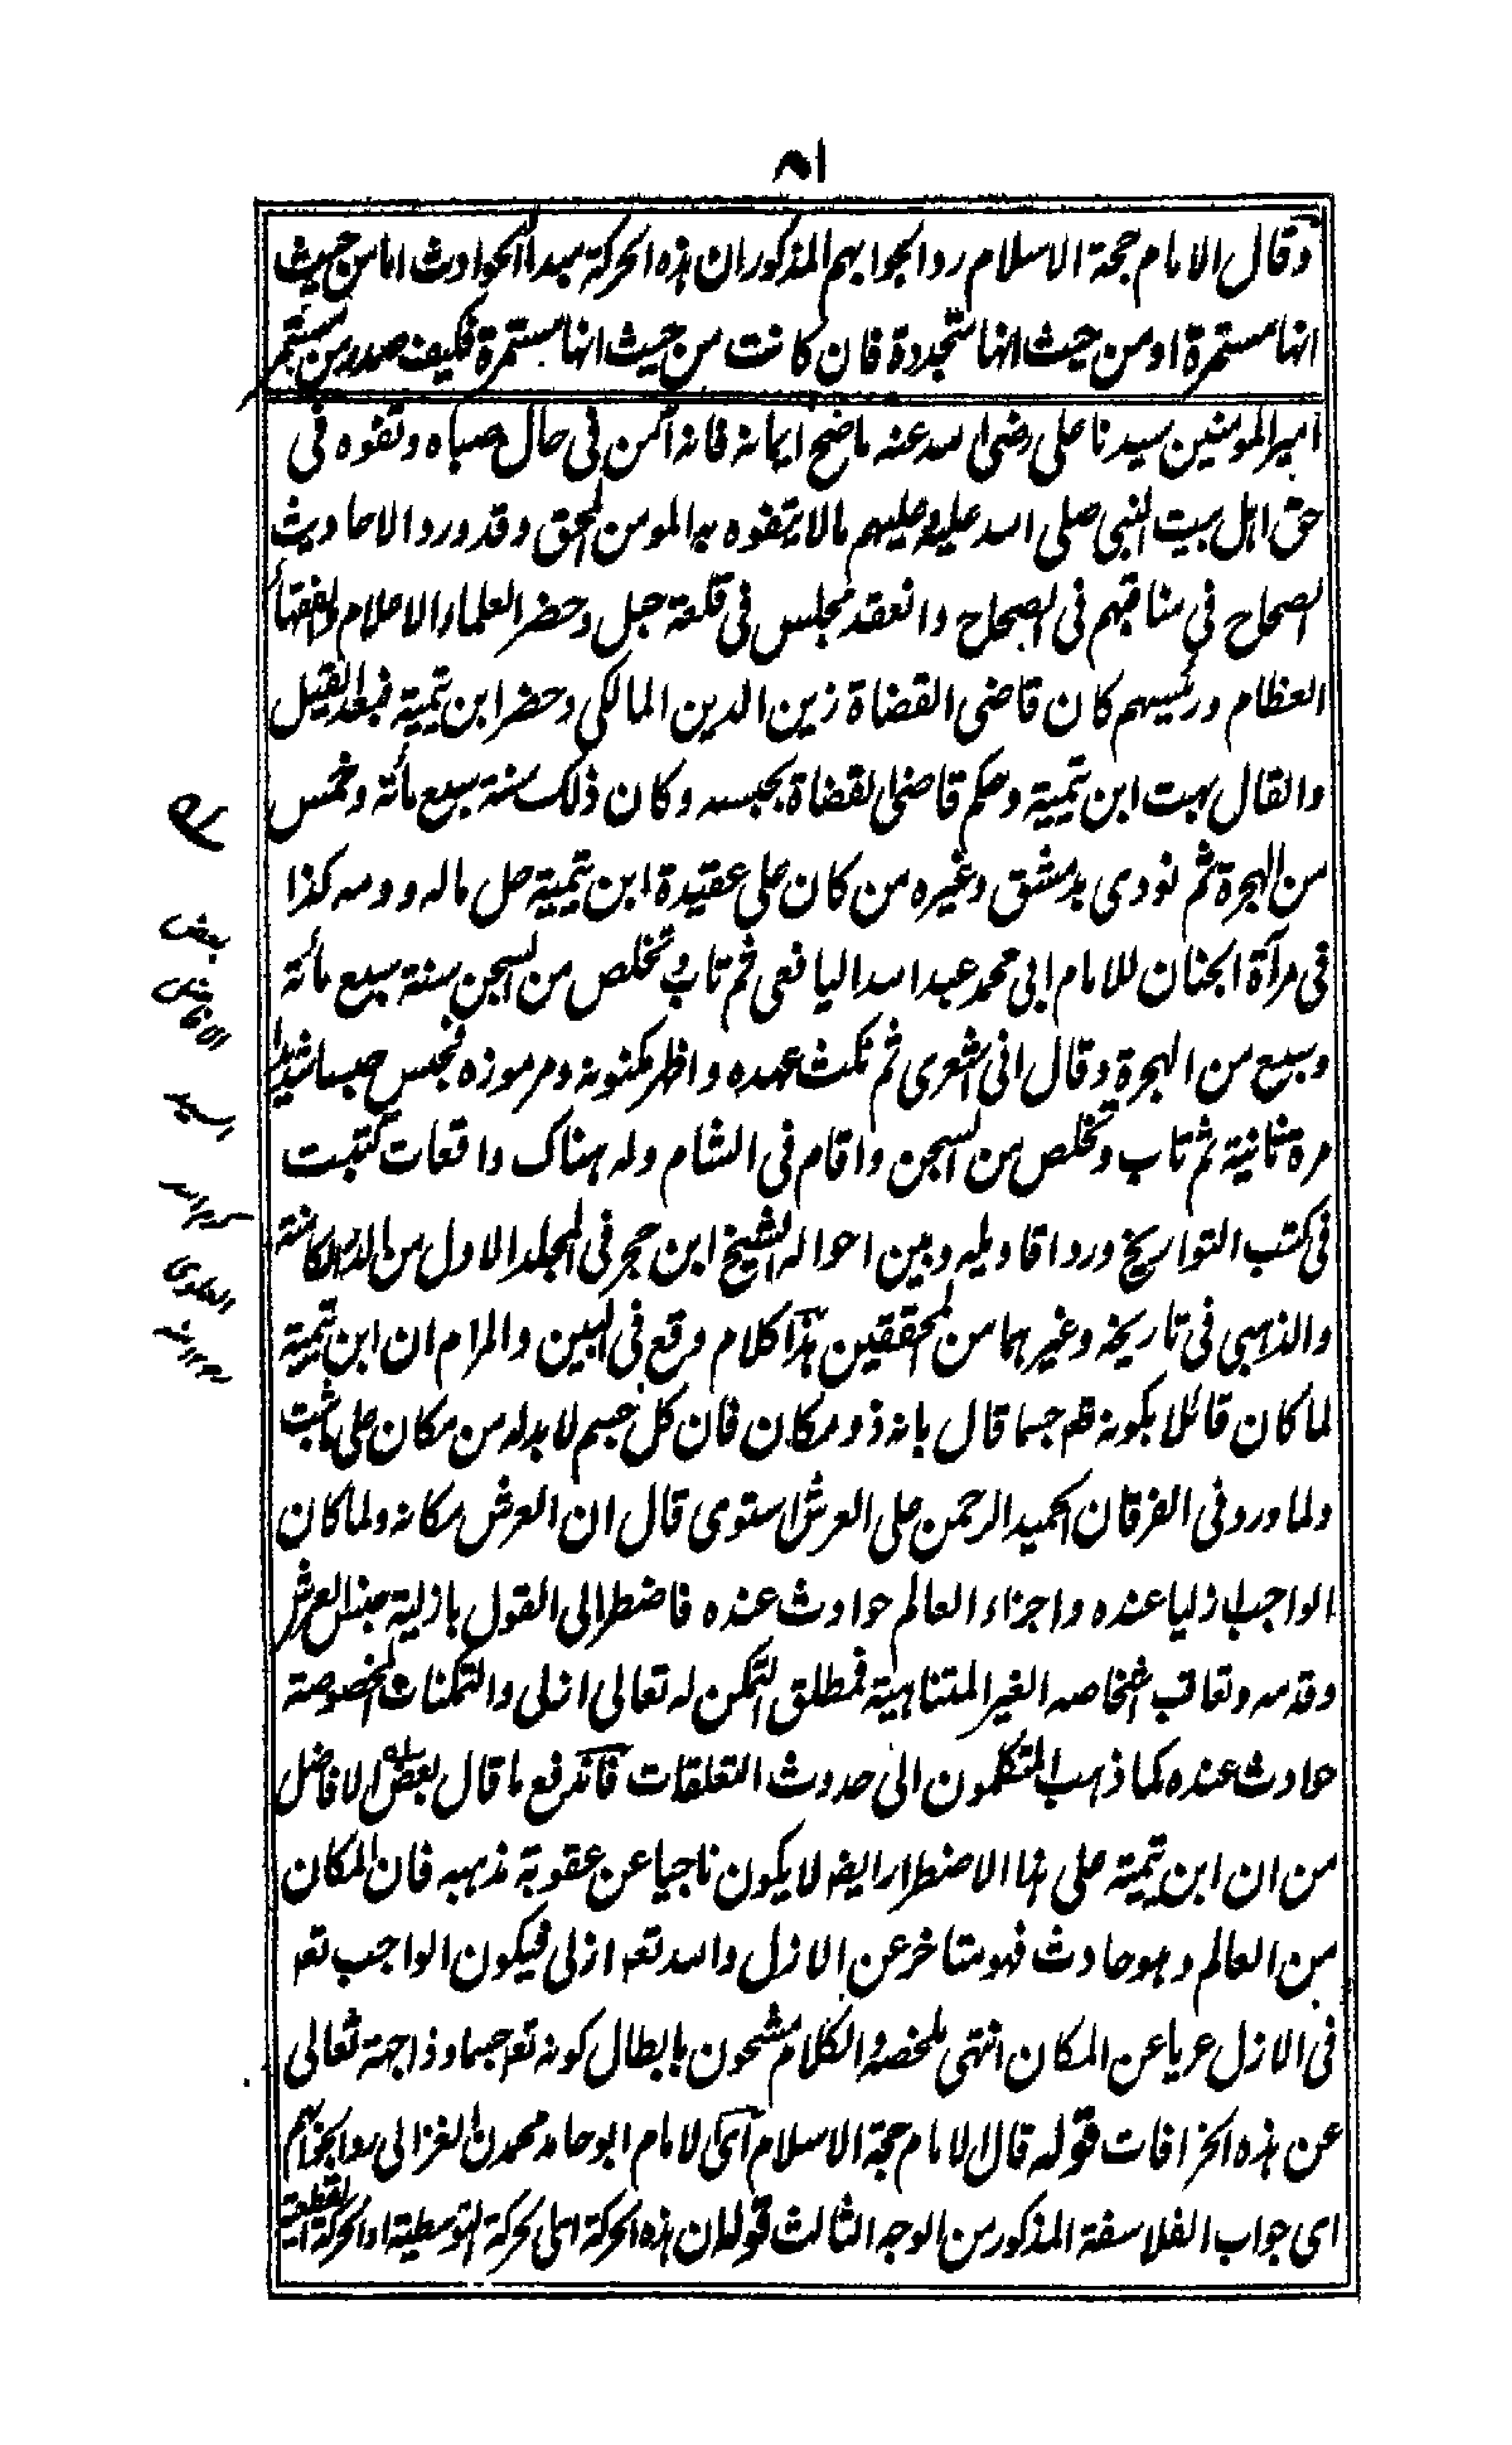 ٨١
وقال الامام حجة الاسلام ردا لجوابهم المذكور ان هذه الحركة مبدأ الحوادث اما من حيث
انها مستمرة او من حيث انها متجددة فان كانت من حيث انها مستمرة فكيف صدر من مستمر
امير المومنين سيدنا على رضى الله عنه ما صح ايمانه فانه آمن فى حال صباه وتفوه فى
حق اهل بيت النبى صلى الله عليه وعليهم مالا يتفوه به المومن المحق وقد ورد الاحاديث
الصحاح فى مناقبهم فى الصحاح وانعقد مجلس فى قلعة جبل وحضر العلماء الاعلام والفقهاء
العظام ورئيسهم كان قاضى القضاة زين الدين المالكى وحضر ابن تيمية فبعد القيل
والقال بهت ابن تيمية وحكم قاضى القضاة بحبسه وكان ذلك سنة سبع مائة وخمس
من الهجرة ثم نودى بدمشق وغيره من كان على عقيدة ابن تيمية حل ماله ودمه كذا
فى مرآة الجنان للامام ابى محمد عبد الله اليافعى ثم تاب وتخلص من السجن سنة سبع مائة
وسبع من الهجرة وقال انى اشعرى ثم نكث عهده واظهر مكنونه ومرموزه فحبس حبسا شديدا
مرة ثانية ثم تاب وتخلص من السجن واقام فى الشام وله هناك واقعات كتبت
فى كتب التواريخ ورد اقاويله وبين احواله الشيخ ابن حجر فى المجلد الاول من الدرر الكامنة
والذهبى فى تاريخه وغيرهما من المحققين هذا كلام وقع فى البين والمرام ان ابن تيمية
لما كان قائلا بكونه تعم جسما قال بانه ذو مكان فان كل جسم لابد له من مكان على ما ثبت
ولما ورد فى الفرقان الحميد الرحمن على العرش استوى قال ان العرش مكانه ولما كان
الواجب ازليا عنده واجزاء العالم حوادث عنده فاضطر الى القول بازلية جنس العرش
وقدمه وتعاقب اشخاصه الغير المتناهية فمطلق التمكن له تعالى ازلى والتمكنات المخصوصة
حادث عنده كما ذهب المتكلمون الى حدوث التعلقات فاندفع ما قال بعض الافاضل
من ان ابن تيمية على هذا الاضطرار ايضا لا يكون ناجيا عن عقوبة مذهبه فان المكان
من العالم وهو حادث فهو متاخر عن الازل والله تعم ازلى فيكون الواجب تعم
فى الازل عريا عن المكان انتهى ملخصه والكلام مشحون بابطال كونه تعم جسما وذا جهة تعالى
عن هذه الخرافات قوله قال الامام حجة الاسلام آى الامام ابو حامد محمدن الغزالى ردا لجوابهم
اى جواب الفلاسفة المذكور من الوجه الثالث قوله ان هذه الحركة اى الحركة التوسطية او الحركة القطعية
بعض
الافاضل
السيد